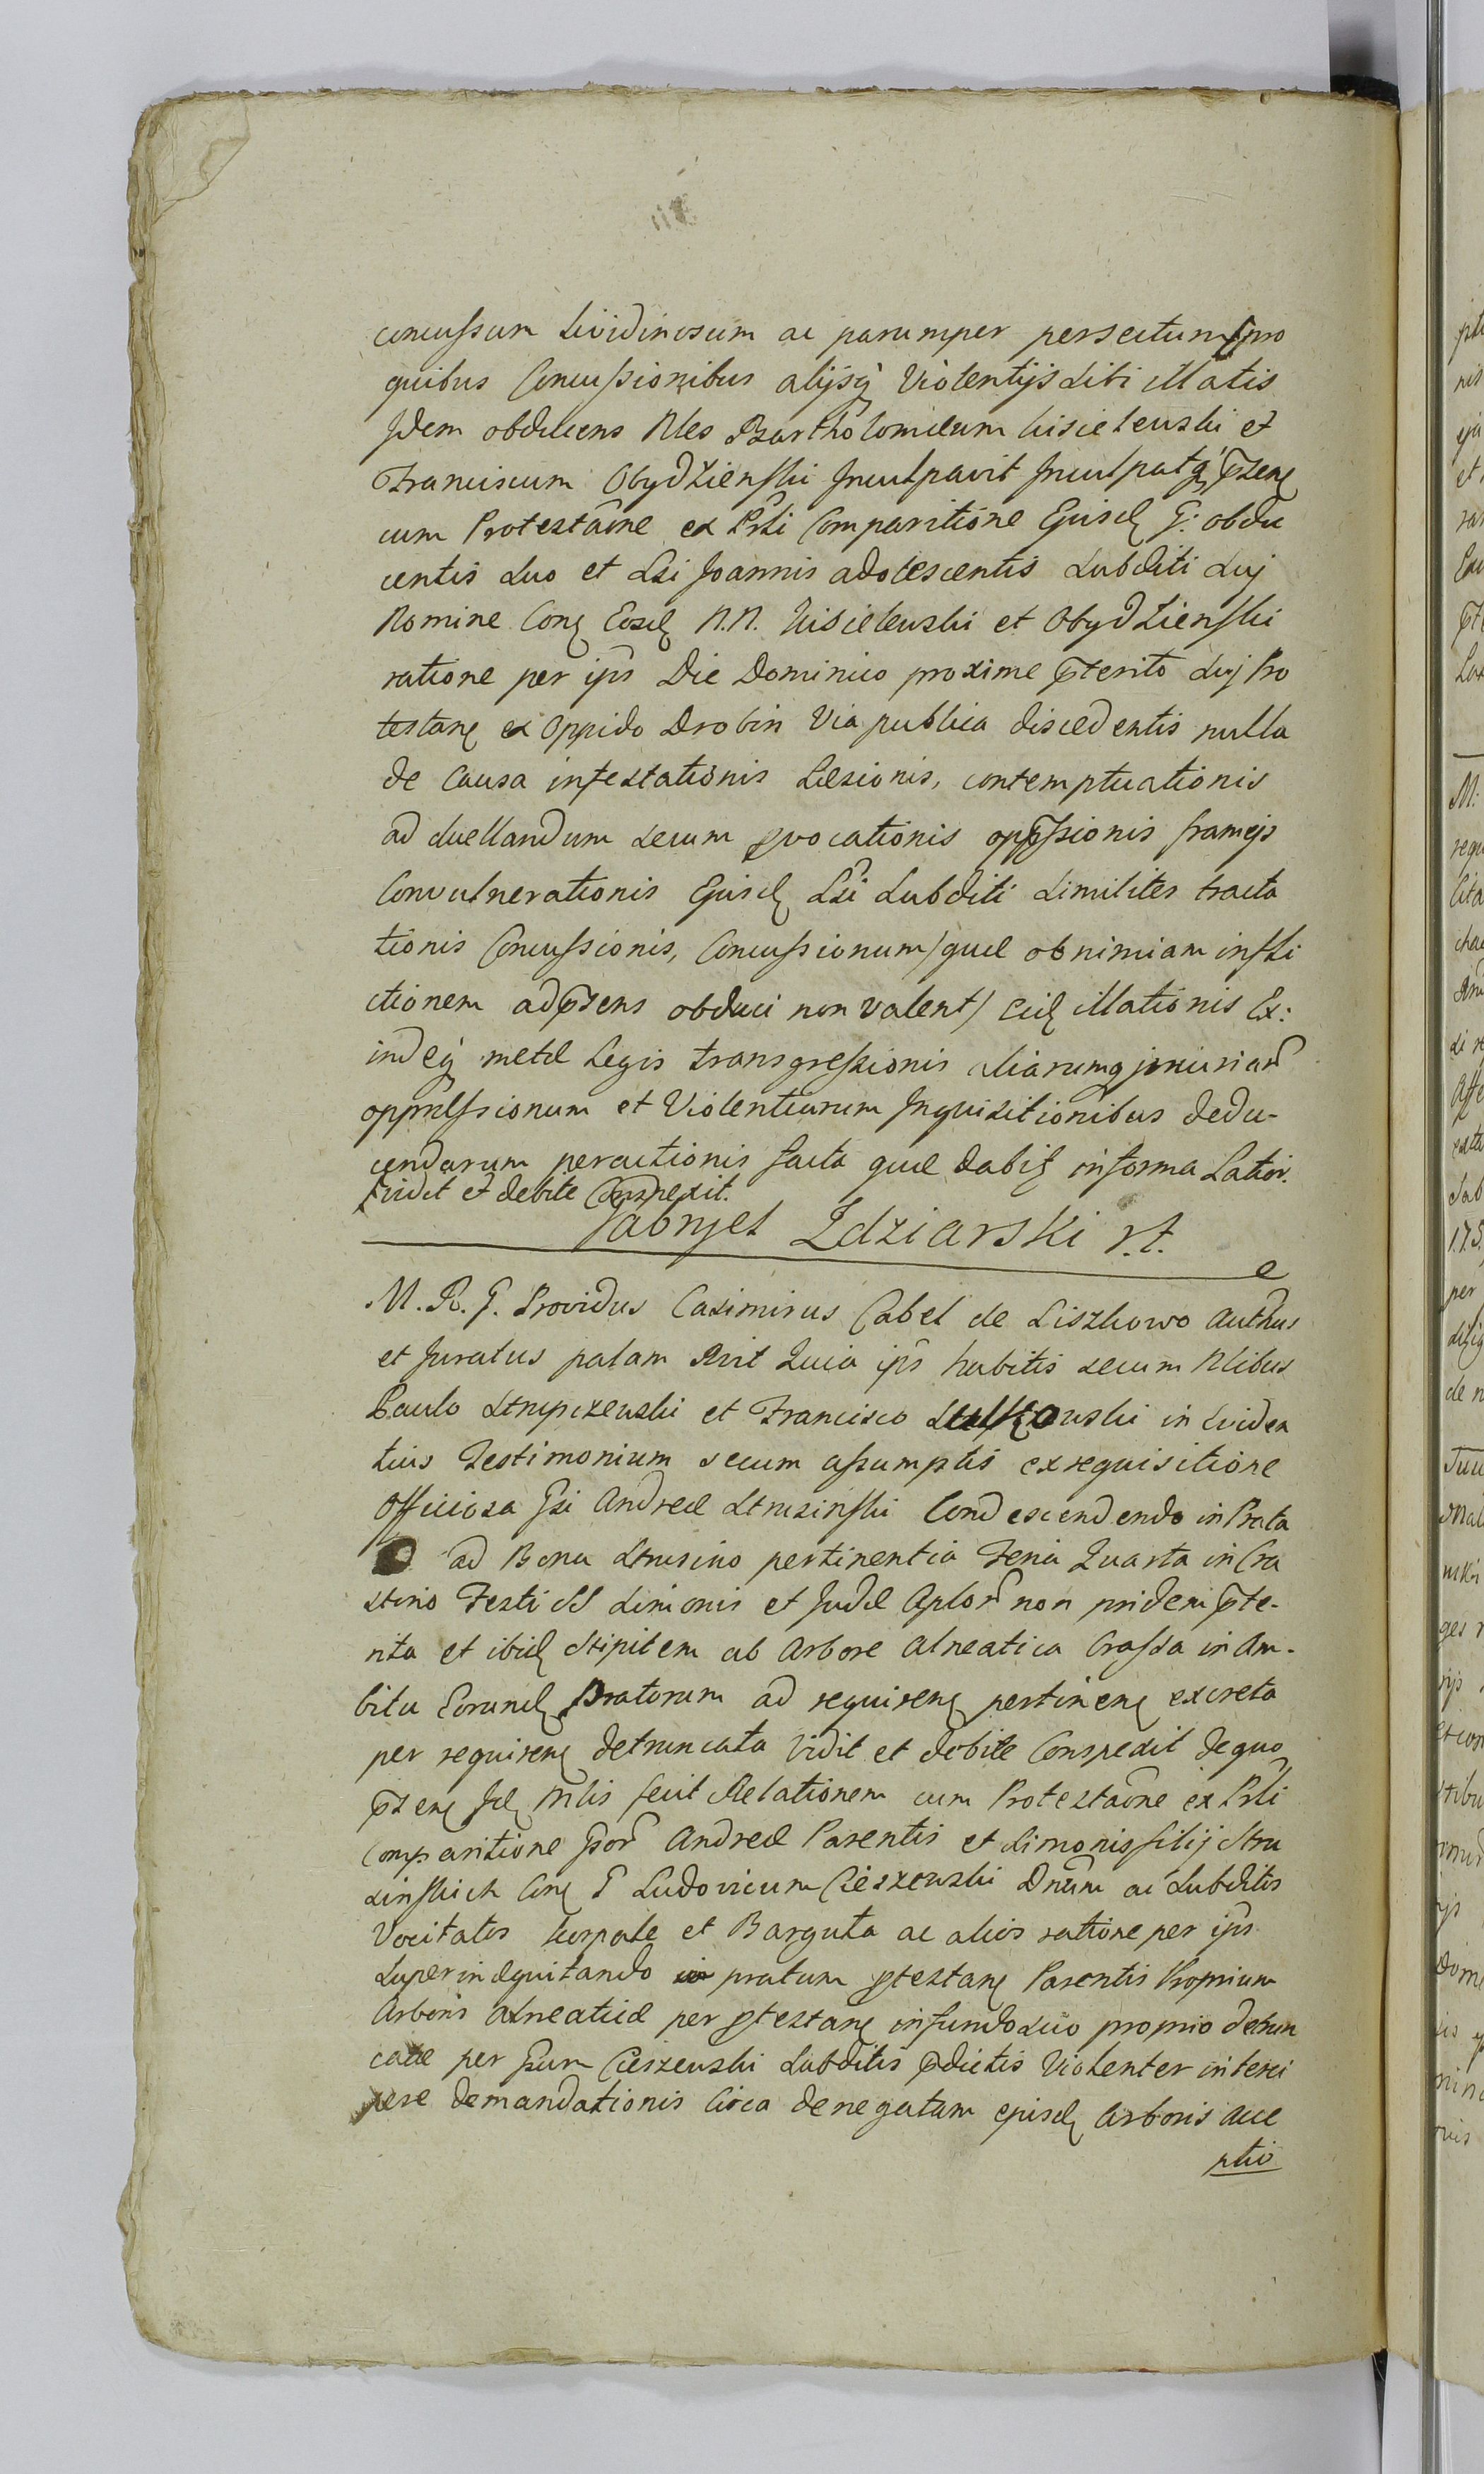 concussum lividinosum ac parumper persectum (pro
quibus Concussionibus alijsq̃ Violentijs Sibi illatis
Idem obducens Nles Bartholomæum Kisielewski et
Franciscum Obydzienski Inculpavit Inculpatq̃ p̃sens
cum Protestaõne ex Prsli Comparitione Ejusd. G: obdu
centis Suo et Lsi Joannis adolescentis Subditi Suj
Nomine Con. Eosd. N.N. Kisielewski et Obydzienski
ratione per ips Die Dominico proxime p̃terito Suj Pro
testan. ex Oppido Drobin Via publica discedentis nulla
de Causa infestationis Læsionis, contemptuationis
ad duellandum secum provocationis opp̃ssionis frameis
Convulnerationis Ejusd. Lsi Subditi Similiter tracta
tionis Concussionis, Concussionum (quæ ob nimiam infli
ctionem ad p̃sens obduci non valent) eid. illationis Ex:
indeq̃ metæ Legis transgressionis aliarumq̃ injuriar̃
oppressionum et Violentiarum Inquisitionibus dedu-
cendarum peractionis facta quæ dabit. in forma Lation.
Vidit et debite Conspexit.
Gabryel Zdziarski r.t.
M. R. G. Providus Casimirus Gabel de Liszkowo authus
et Juratus palam Rvit Quia ips habitis secum Nlibus
Paulo Strupczewski et Francisco in Eviden
tius Testimonium secum assumptis ex requisitione
Officiosa Gsi Andreæ Strusinski Condescendendo in Prata
ad Bona Strusino pertinentia Feria Quarta in Cra
stino Festi SS Simonis et Judæ Aplor̃ non pridem p̃te-
rita et ibid. Stipitem ab Arbore alneatica Crassa in Am-
bitu Eorund. Pratorum ad requiren. pertinen. excreta
per requiren. detruncata Vidit et debite Conspexit de quo
p̃sens Id. Mlis fecit Relationem cum Protestaõne ex Prsli
Comparitione Gsor̃ Andreæ Parentis et Simonis filij Stru
sinskich Con. G Ludovicum Cieszewski Dnum ac Subditos
Vocitatos Korpale et Barguta ac alios ratione per ips
Superinequitando in pratum p̃testan. Parentis Proprium
Arboris alneaticæ per p̃testan. in fundo suo proprio detrun
catæ per Gsum Cieszewski Subditis p̃dictis Violenter interci
pere demandationis Circa denegatam ejusd. Arboris acce
ptio